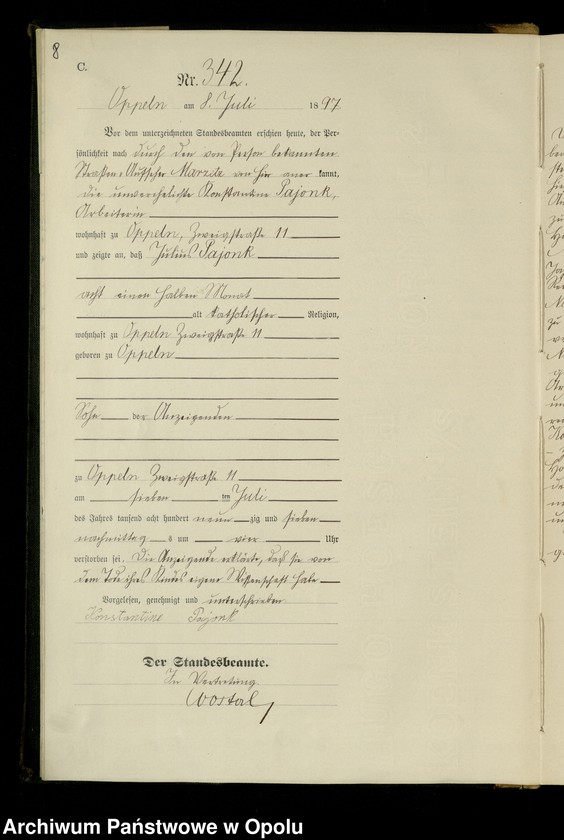 8
C.
Nr. 342.
Oppeln am 8. Juli 1897
Vor dem unterzeichneten Standesbeamten erschien heute, der Per-
sönlichkeit nach durch den von Person bekannten
Straßen-Aufseher Marzita von hier aner kannt,
die unverehelichte Konstantine Pajonk,
Arbeiterin
wohnhaft zu Oppeln, Zweigstraße 11
und zeigte an, daß Julius Pajonk
acht einen halben Monat
alt katholischer Religion,
wohnhaft zu Oppeln Zweigstraße 11
geboren zu Oppeln
Sohn der Anzeigenden
zu Oppeln Zweigstraße 11
am sieben ten Juli
des Jahres tausend acht hundert neun zig und sieben
nachmittag s um vier Uhr
verstorben sei. Die Anzeigende erklärte, daß sie von
dem Tode ihres Kindes eigene Wissenschaft habe
Vorgelesen, genehmigt und unterschrieben
Konstantine Pajonk
Der Standesbeamte.
In Vertretung
Wostal
Archiwum Państwowe w Opolu